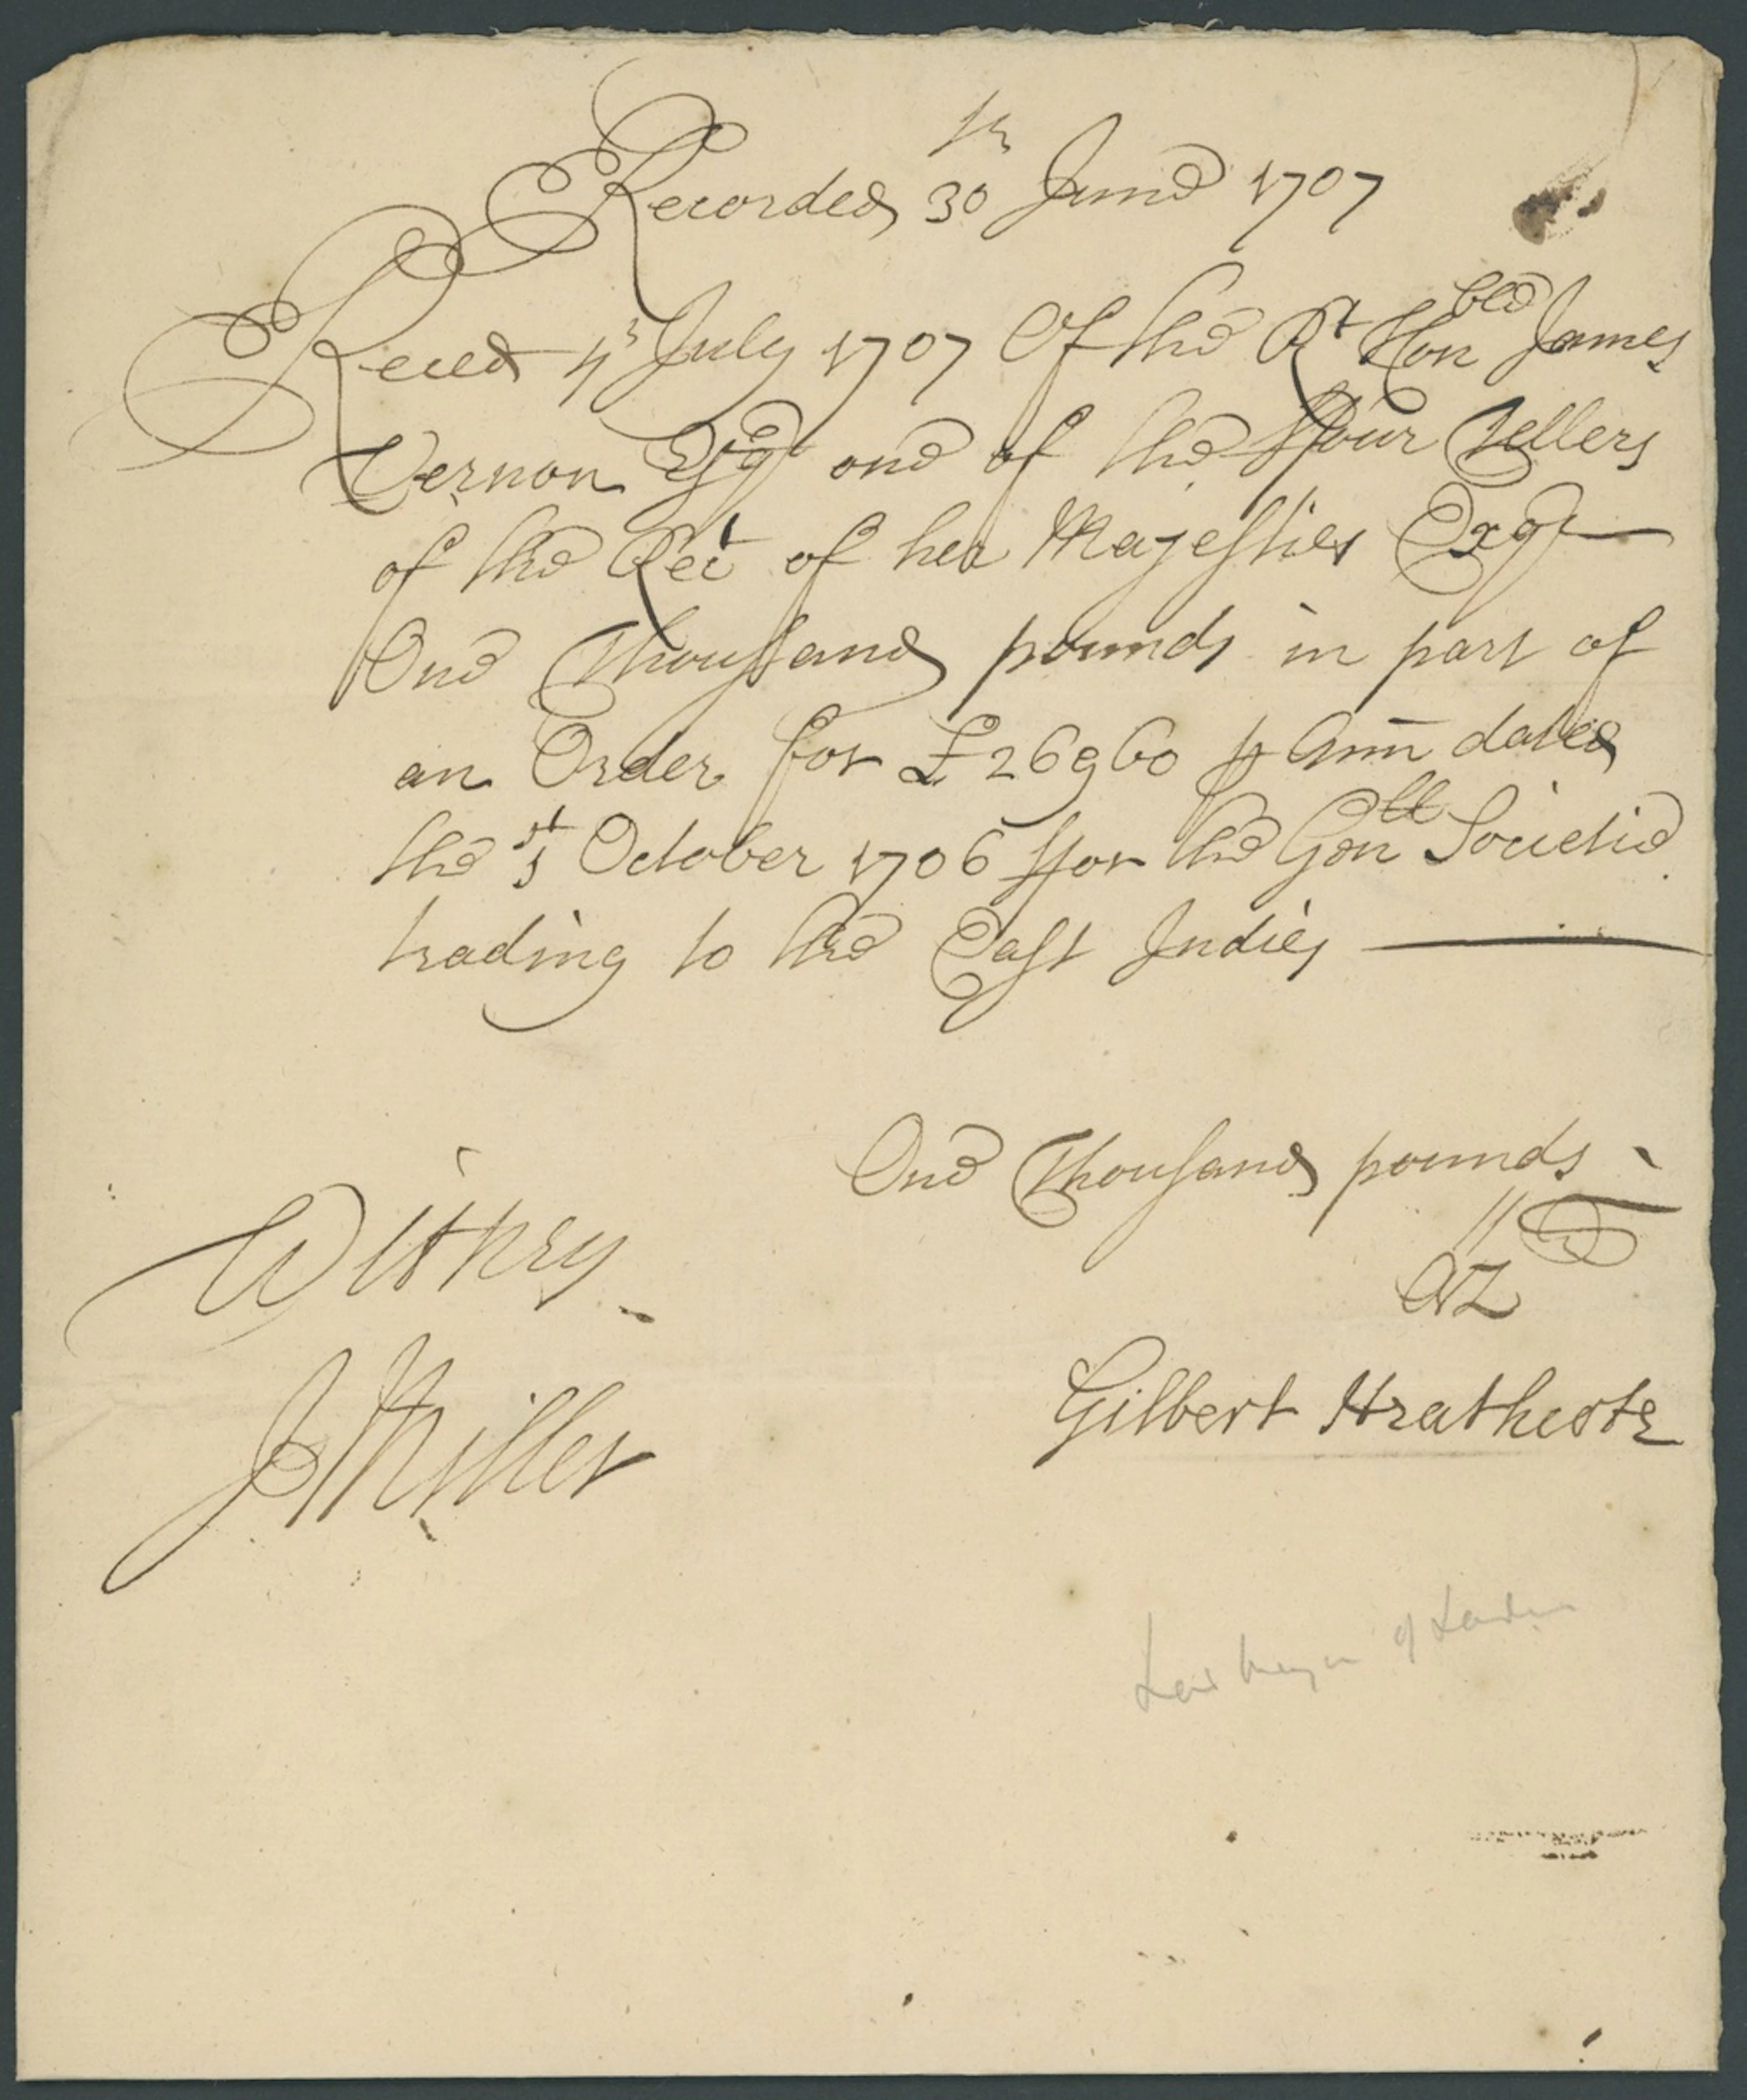 Recorded 30th June 1707
Received 4th July 1707 Of the Rt Honble James
Vernon Esqr one of the ffour Tellers
of the Rect of her Majesties Exqr
One Thoussand pounds in part of
an Order for £26960 p Ann dated
the 1st October 1706 ffor the Genll Societie
trading to the East Indies
One Thousand pounds
Witney
J Miller
Gilbert Heathcote
Lord Mayor of London